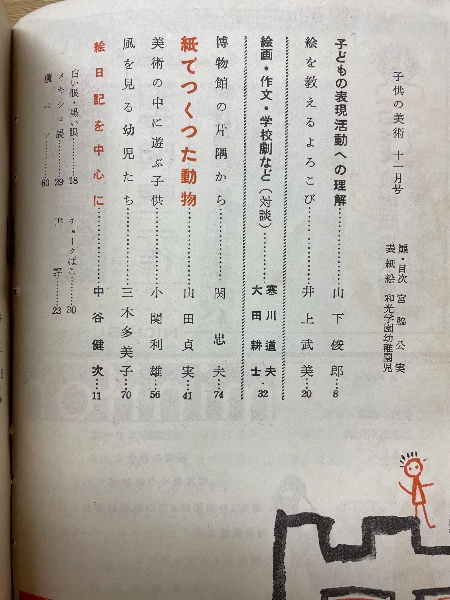 子供の美術 十一月号
扉・目次 宮脇公実
表紙絵 和光学園幼稚園児
子どもの表現活動への理解……山下俊郎…8
絵を教えるよろこび……井上武美…20
絵画・作文・学校劇など(対談)……寒川道夫
大田耕士…32
博物館の片隅から……関忠夫…74
紙でつくつた動物……山田貞実…41
美術の中に遊ぶ子供……小関利雄…56
風を見る幼児たち……三木多美子…70
絵日記を中心に……中谷健次…11
白い眼・黒い眼……18
チョークばこ……30
メキシコ展……29
ペン……60
23